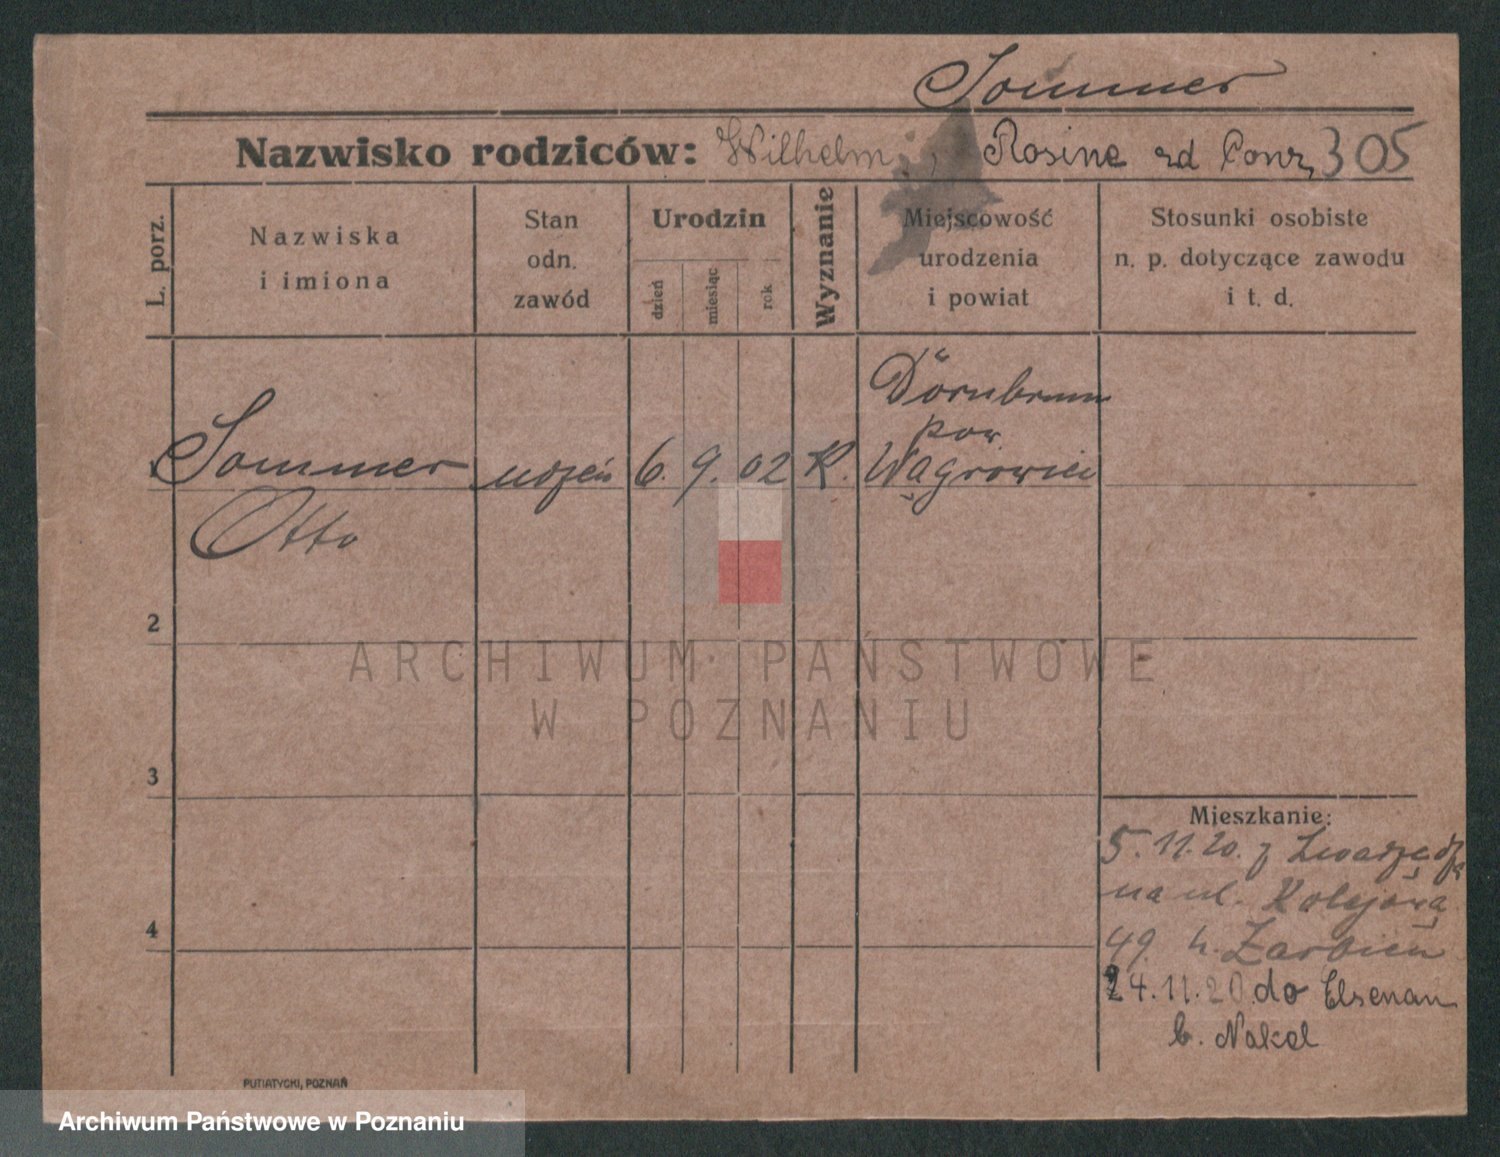 Sommer
Nazwisko rodziców: Wilhelm, Rosine zd 305
L. porz.
Nazwiska
i imiona
Stan
odn.
zawód
Urodzin
dzień
miesiąc
rok
Wyznanie
Miejscowość
urodzenia
i powiat
Stosunki osobiste
n. p. dotyczące zawodu
i t. d.
Sommer
Otto
uczeń
6. 9. 02
Dörnbrunn
pow
Wągrowiec
2
3
4
ARCHIWUM PAŃSTWOWE
W POZNANIU
Mieszkanie:
5.11.20. z
na ul. Kolejową
49.
24.11.20 do Elsenau
b. Nakel
PUTIATYCKI, POZNAŃ
Archiwum Państwowe w Poznaniu